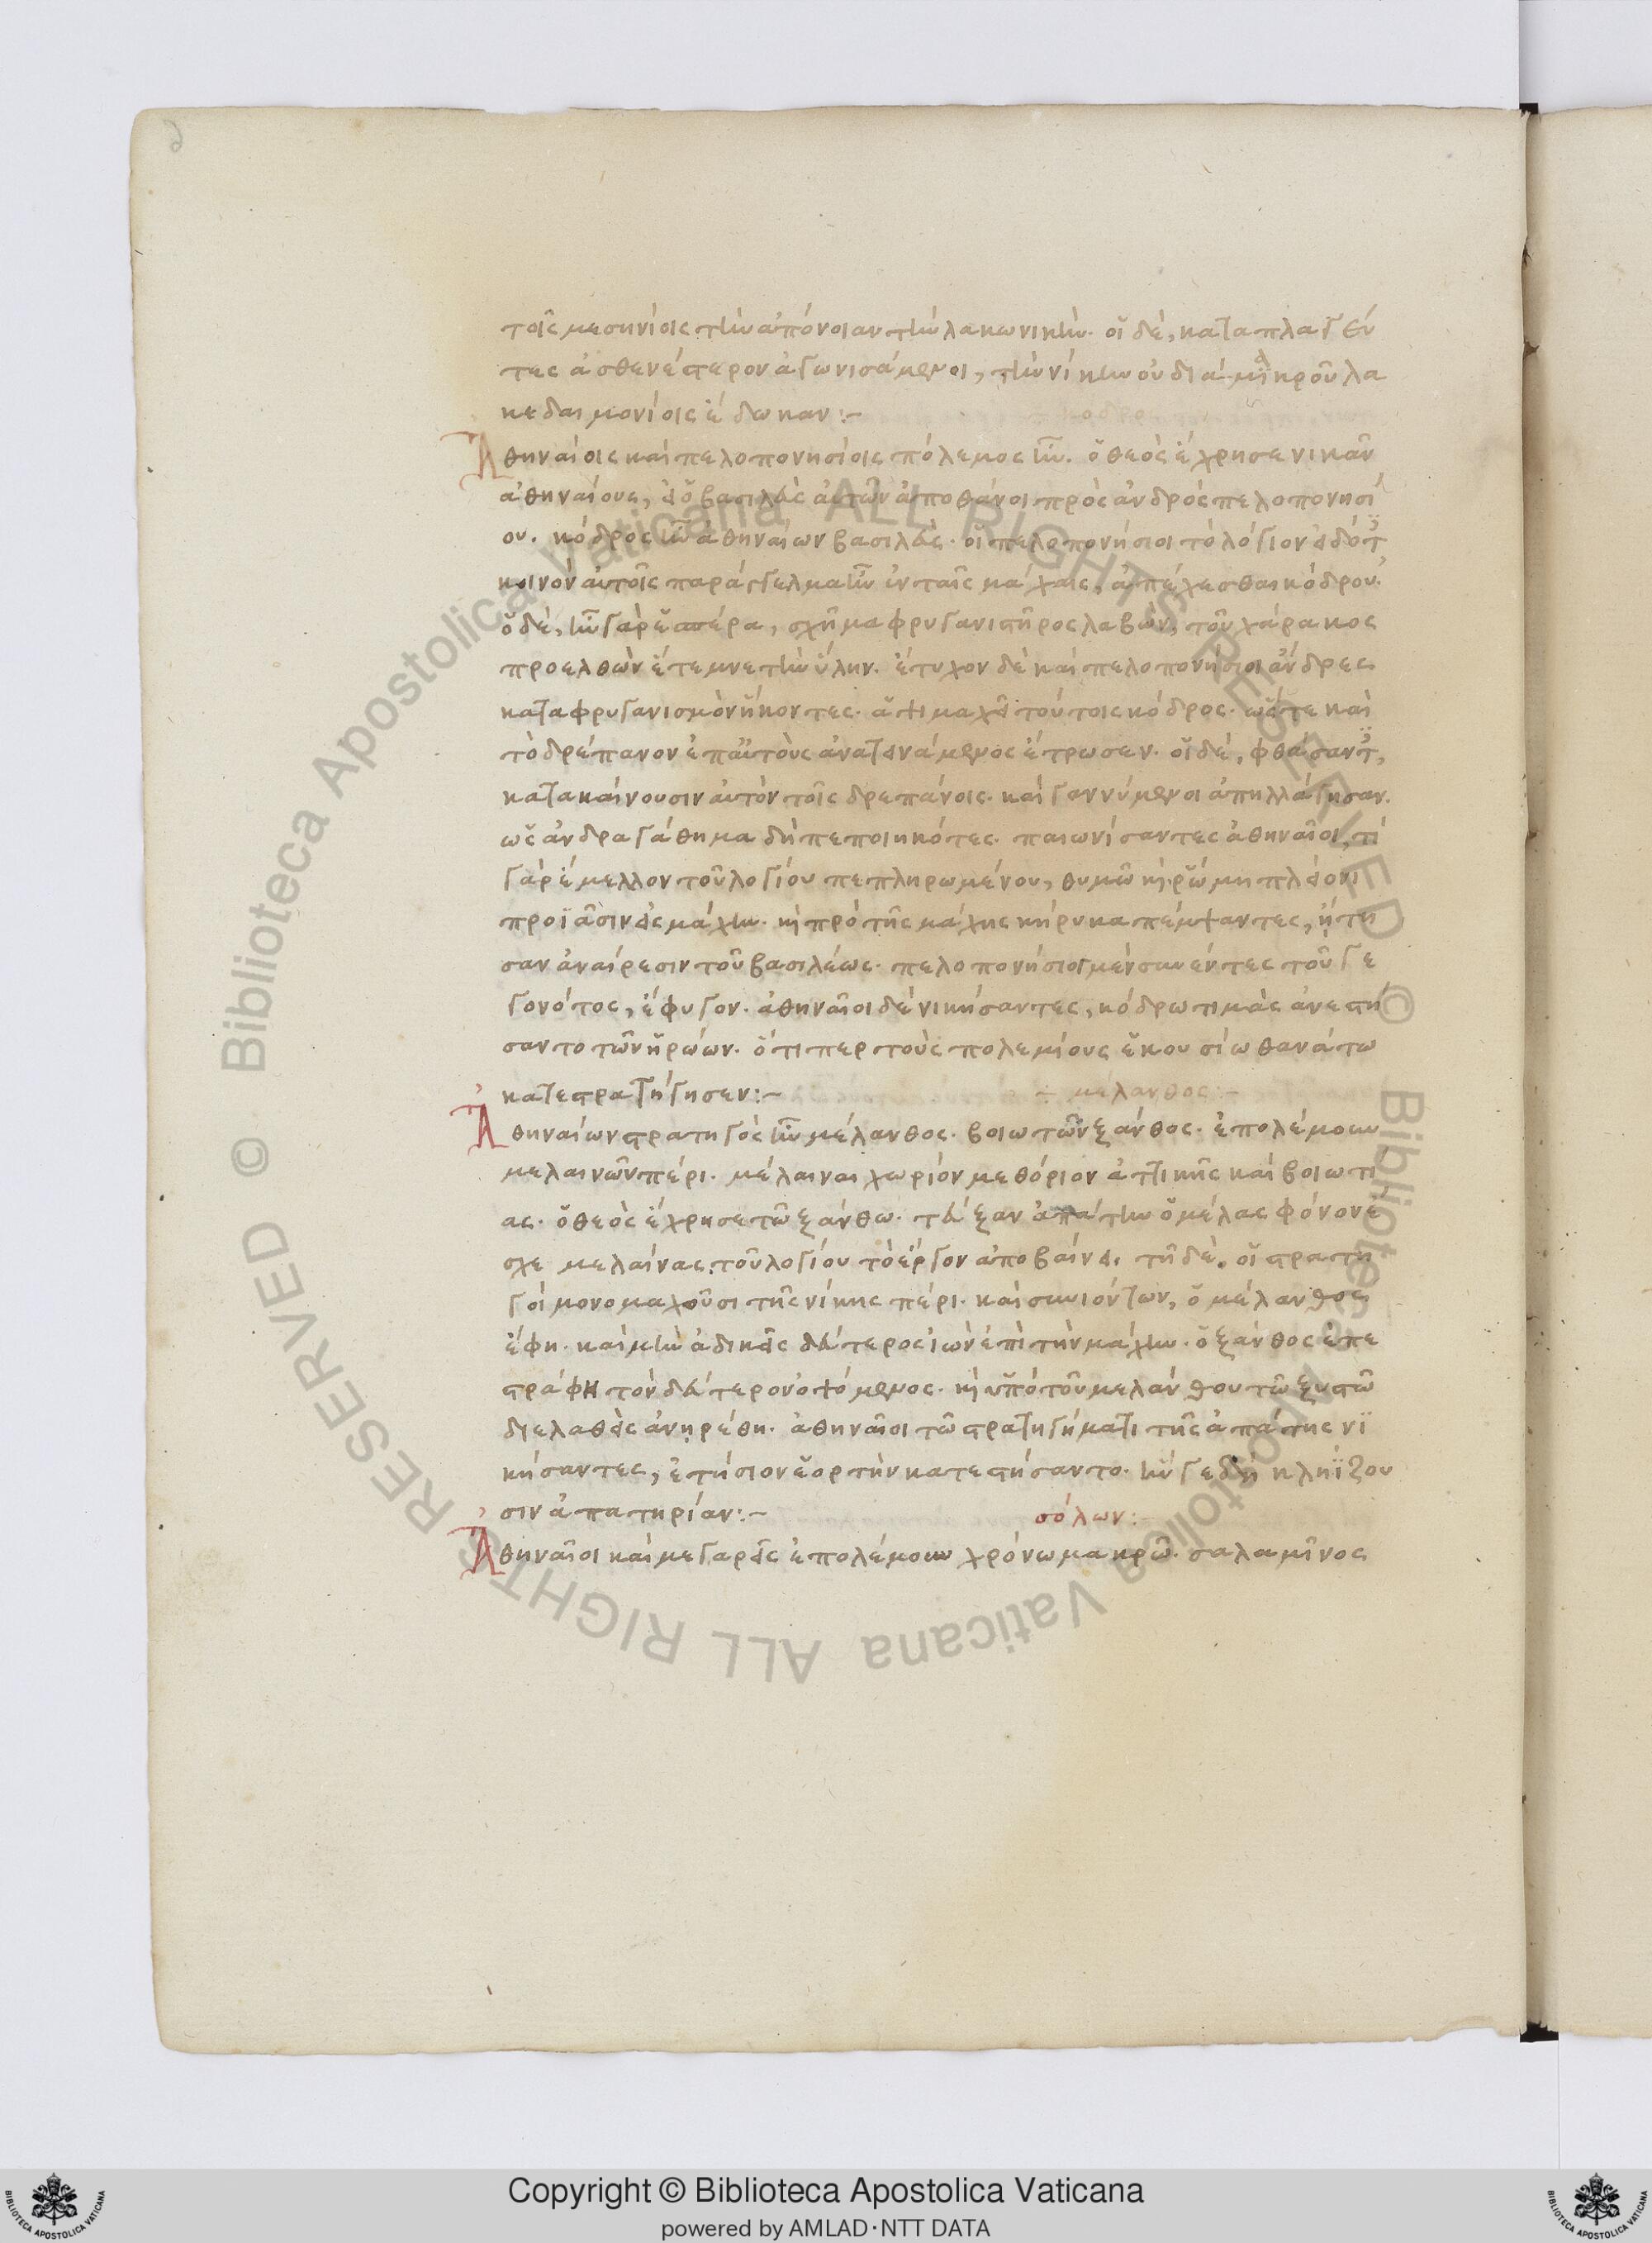 τοῖς μεσηνίοις τὴν ἀπόνοιαν τὴν λακωνικήν. οἱ δὲ, καταπλαγέν
τες ἀσθενέστερον ἀγωνισάμενοι, τὴν νίκην οὐ διὰ μικροῦ λα
κεδαιμονίοις ἔδωκαν:~
κόδρο
Ἀθηναίοις καὶ πελοπονησίοις πόλεμος ἦν. ὁ θεὸς ἔχρησε νικᾶν
ἀθηναίους, εἰ ὁ βασιλεὺς αὐτῶν ἀποθάνοι πρὸς ἀνδρὸς πελοπονησί
ου. κόδρος ἦν ἀθηναίων βασιλεύς. οἱ πελοπονήσιοι τὸ λόγιον εἰδότες
κοινὸν αὐτοῖς παράγγελμα ἦν ἐν ταῖς μάχαις, ἀπέχεσθαι κόδρου.
ὁ δὲ, ἦν γὰρ ἑσπέρα, σχῆμα φρυγανιστῆρος λαβὼν, τοῦ χάρακος
προελθὼν ἔτεμνε τὴν ὕλην. ἔτυχον δὲ καὶ πελοπονήσιοι ἄνδρες
κατὰ φρυγανισμὸν ἥκοντες. μαχεῖ τούτοις κόδρος. ὥστε καὶ
τὸ δρέπανον ἐπ αὐτοὺς ἀνατεινάμενος ἔτρωσεν. οἱ δὲ, φθάσαντες,
κατακαίνουσιν αὐτὸν τοῖς δρεπάνοις. καὶ γαννύμενοι ἀπηλλάγησαν.
ὡς ἀνδραγάθημα δὴ πεποιηκότες. παιωνίσαντες ἀθηναῖοι, τί
γὰρ ἔμελλον τοῦ λογίου πεπληρωμένου, θυμῶ καὶ ῥώμη πλείονι
προΐασιν εἰς μάχην. καὶ πρὸ τῆς μάχης κήρυκα πέμψαντες, ἤτη
σαν ἀναίρεσιν τοῦ βασιλέως. πελοπονήσιοι μὲν συνέντες τοῦ γε
γονότος, ἔφυγον. ἀθηναῖοι δὲ νικήσαντες, κόδρω τιμὰς ἀνεστή
σαντο τῶν ἡρώων. ὅτι περ τοὺς πολεμίους ἑκουσίω θανάτω
κατεστρατήγησεν:~ ÷ μέλανθος:~
Ἀθηναίων στρατηγὸς ἦν μέλανθος. βοιωτῶν ξάνθος. ἐπολέμουν
μελαινῶν πέρι. μέλαιναι χωρίον μεθόριον ἀττικῆς καὶ βοιωτί
ας. ὁ θεὸς ἔχρησε τῶ ξάνθω. τεύξαν ἀπάτην ὁ μέλας φόνον ἔ
σχε μελαίνας. τοῦ λογίου τὸ ἔργον ἀποβαίνει τῆδε. οἱ στρατη
γοὶ μονομαχοῦσι τῆς νίκης πέρι. καὶ συνιόντων, ὁ μέλανθος
ἔφη. καὶ μὴν ἀδικεῖς δεύτερος ἰὼν ἐπὶ τὴν μάχην. ὁ ξάνθος ἐπε
στράφη τὸν δεύτερον ὀψόμενος. καὶ ὑπὸ τοῦ μελάνθου τῶ ξυστῶ
διελαθεὶς ἀνηρέθη. ἀθηναῖοι τῶ στρατηγήματι τῆς ἀπάτης νϊ
κήσαντες, ἐτήσιον ἑορτὴν κατεστήσαντο. ἣν γε δὴ κληΐζου
σιν ἀπατηρίαν:~ σόλων:~
Ἀθηναῖοι καὶ μεγαρεῖς ἐπολέμουν χρόνω μακρῶ. σαλαμῖνος
Copyright © Biblioteca Apostolica Vaticana
powered by AMLAD·NTT DATA
© Biblioteca Apostolica Vaticana ALL RIGHTS RESERVED
© Biblioteca Apostolica Vaticana ALL RIGHTS RESERVED
BIBLIOTECA APOSTOLICA VATICANA
BIBLIOTECA APOSTOLICA VATICANA